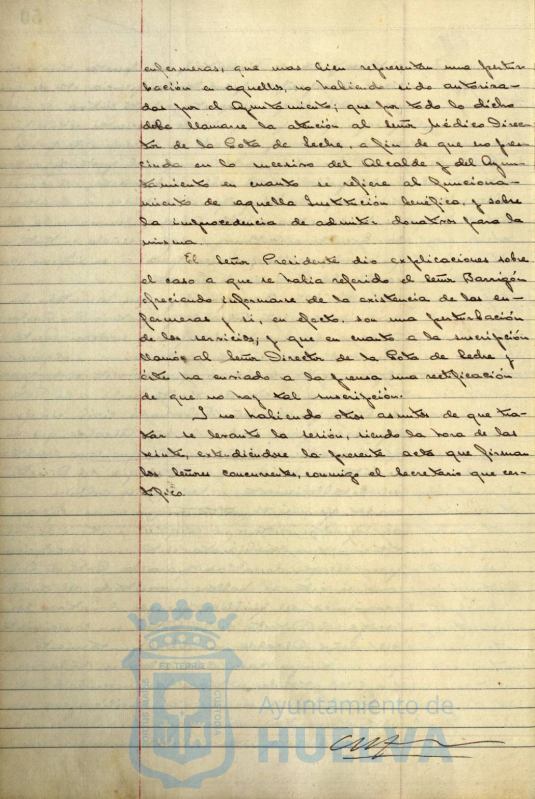 enfermeras, que mas bien representan una pertur-
bación en aquellos, no habiendo sido autoriza-
das por el Ayuntamiento; que por todo lo dicho
debe llamarse la atención al Señor Médico Direc-
tor de la Gota de leche, a fin de que no pres-
cinda en lo sucesivo del Alcalde y del Ayun-
tamiento en cuanto se refiere al funciona-
miento de aquella Institución benéfica, y sobre
la improcedencia de admitir donativos para la
misma.
El Señor Presidente dio explicaciones sobre
el caso a que se había referido el Señor Barrigón
ofreciendo informarse de la existencia de las en-
fermeras y si, en efecto, son una perturbación
de los servicios; y que en cuanto a la suscripción
llamó al Señor Director de la Gota de leche y
éste ha enviado a la prensa una rectificación
de que no hay tal suscripción.
Y no habiendo otros asuntos de que tra-
tar, se levantó la sesión, siendo la hora de las
veinte, extendiéndose la presente acta que firman
los Señores concurrentes, conmigo el Secretario que cer-
tifico.
Ayuntamiento de
HUELVA